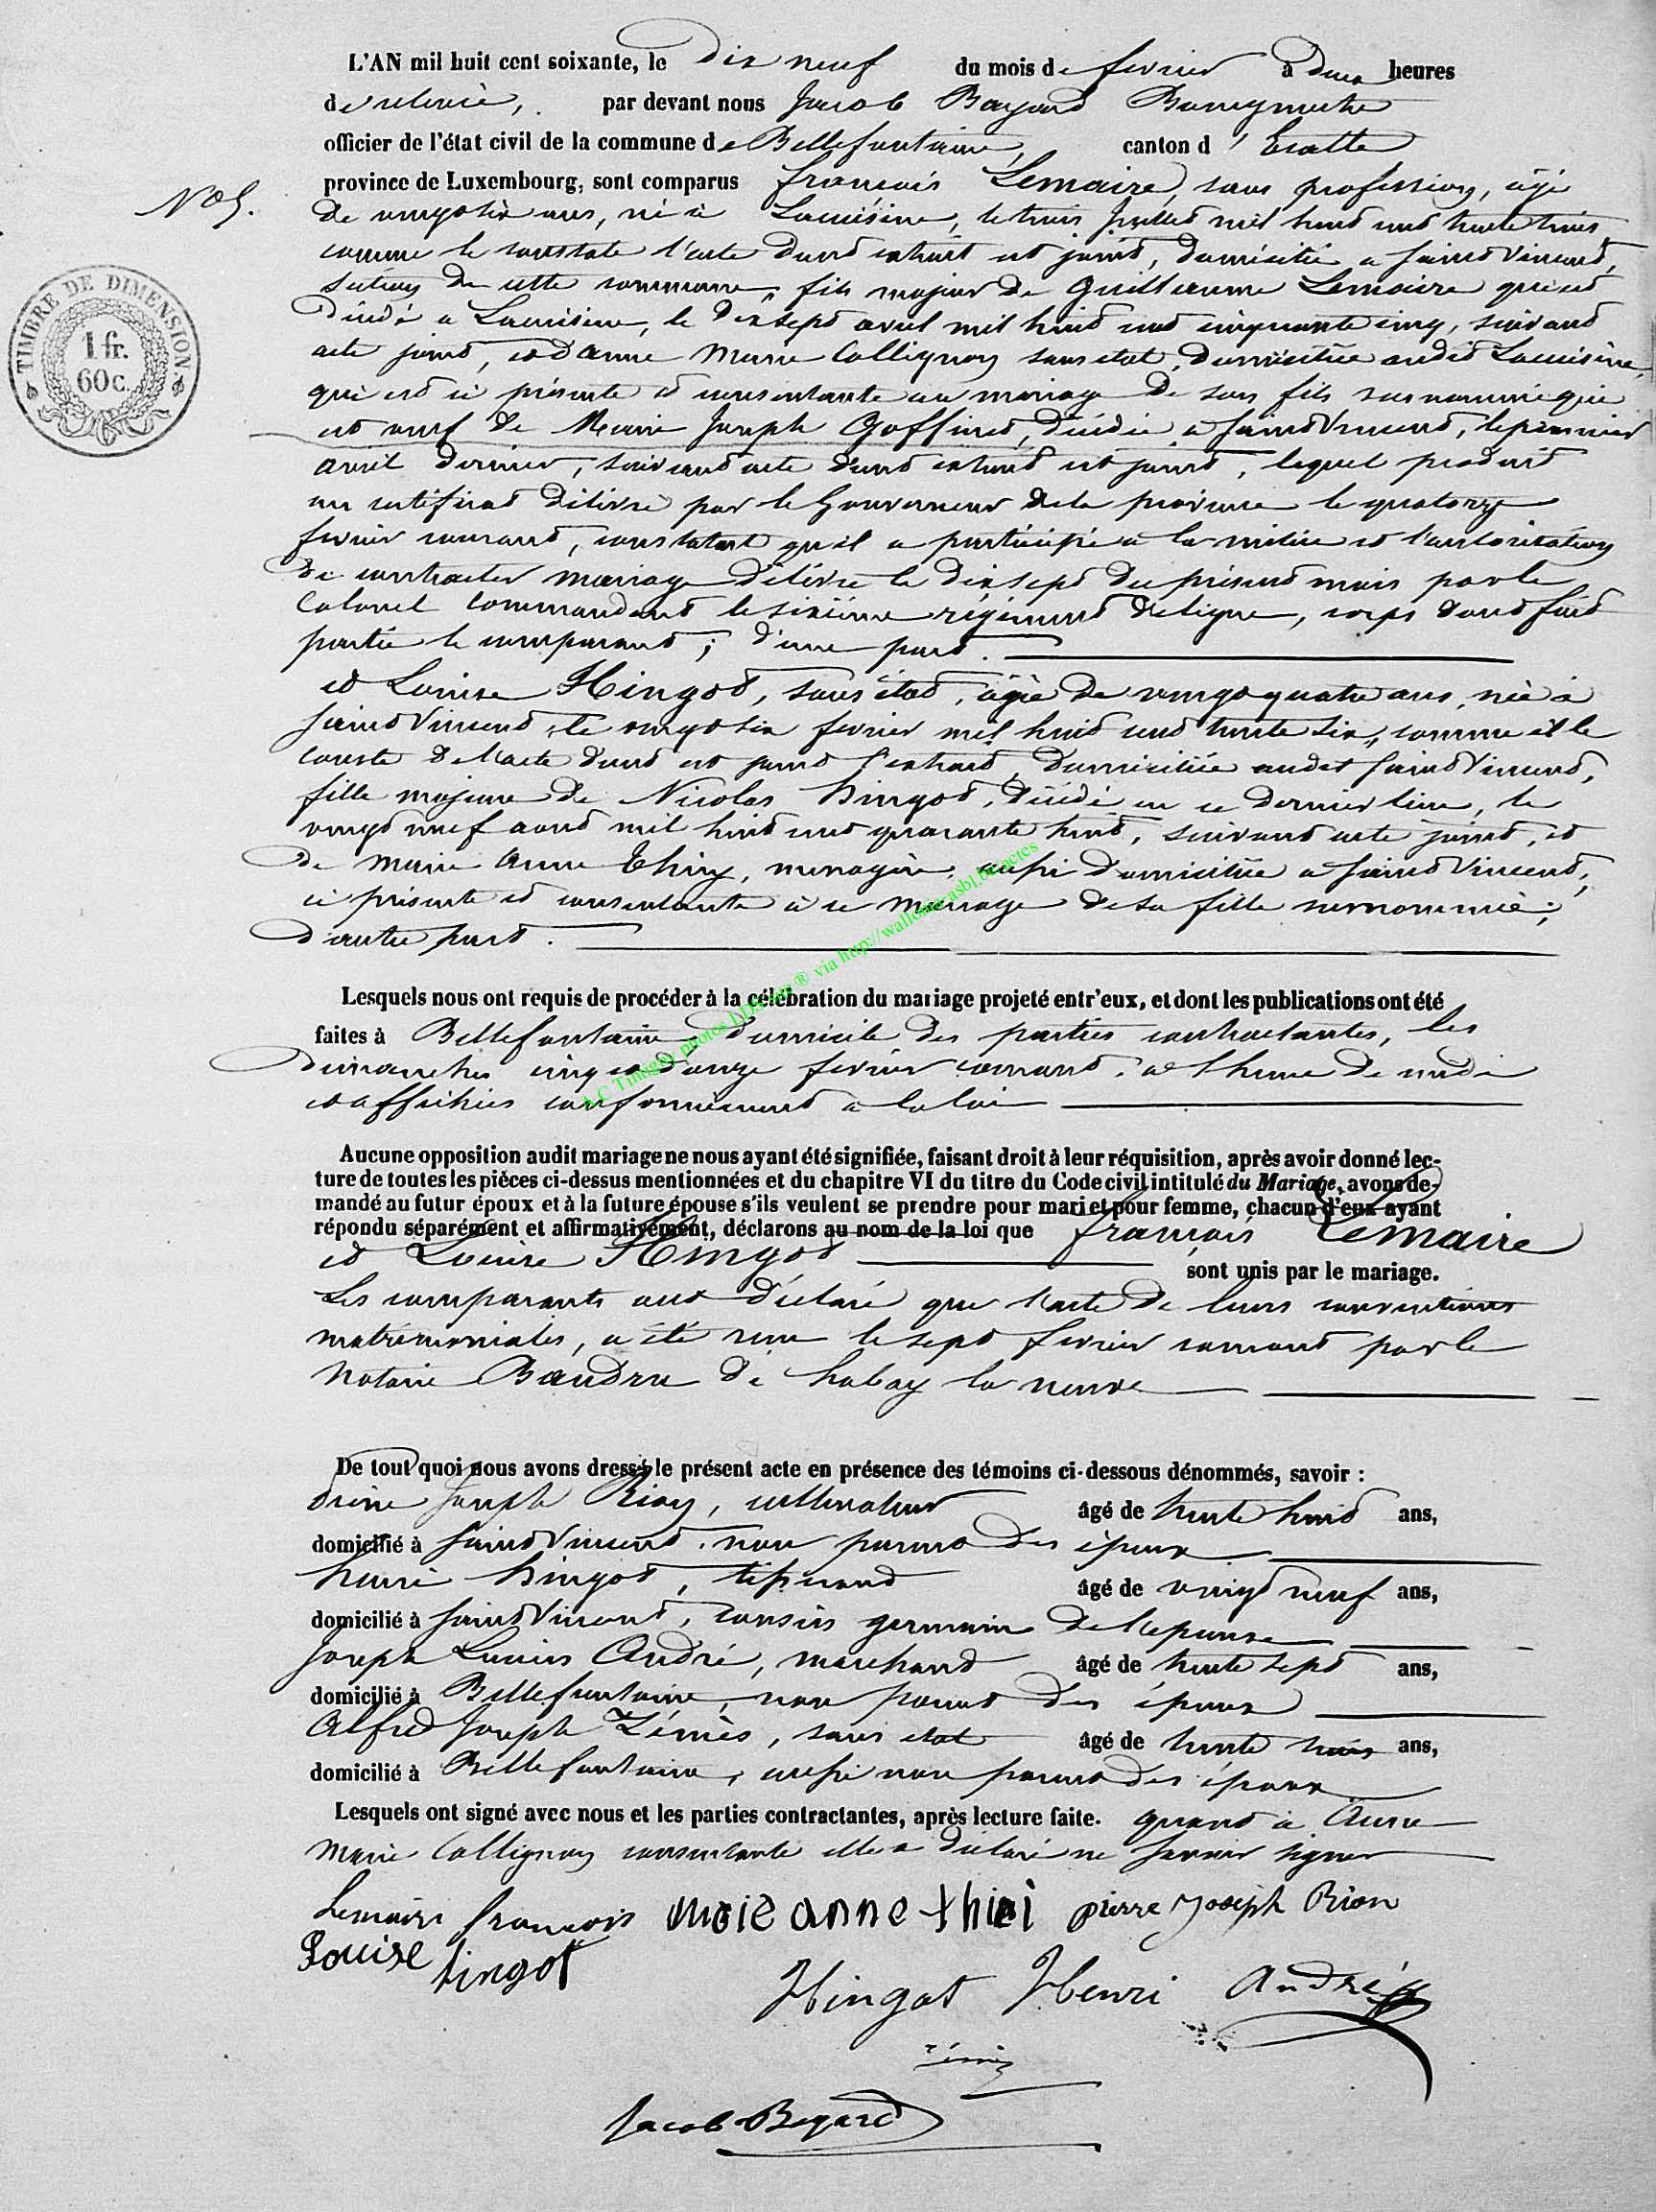 L'AN mil huit cent soixante, le dix neuf du mois de fevrier à deux heures
de relevée, par devant nous Jacob Bayard Bourgmestre
officier de l'état civil de la commune de Bellefontaine, canton d'Etalle
province de Luxembourg, sont comparus françois Lemaire, sans profession, âgé
N° 5.
de vingt six ans, né à Lacuisine, le trois juillet mil huit cent trente trois
comme le constate l'acte dont extrait est joint, domicilié a saint Vincent,
section de cette commune, fils majeur de Guillaume Lemaire qui est
décédé a Lacuisine, le dix sept avril mil huit cent cinquante cinq, suivant
TIMBRE DE DIMENSION.
1 fr.
60 c.
acte joint, et d'anne Marie Collignon sans etat, domiciliée audit Lacuisine,
qui est ici présente et consentante au mariage de son fils susnommé qui
est veuf de Marie Joseph Goffinet, décédée a saint Vincent, le premier
avril dernier, suivant acte dont extrait est joint, lequel produit
un certificat délivré par le Gouverneur de la province le quatorze
fevrier courant, constatant qu'il a participé a la milice et l'autorisation
de contracter mariage délivrée le dix sept du présent mois par le
Colonel Commandant le sixième régiment de ligne, corps dont fait
partie le comparant ; d'une part.
et Louise Hingot, sans état, âgée de vingt quatre ans, née à
saint Vincent, le vingt six fevrier mil huit cent trente six, comme il le
conste de l'acte dont est joint l'extrait, domiciliée audit saint Vincent,
fille majeure de Nicolas hingot, décédé en ce dernier lieu, le
vingt neuf aout mil huit cent quarante huit, suivant acte joint, et
de marie anne thiry, menagère, aussi domiciliée a saint Vincent,
ici présente et consentante à ce mariage de sa fille surnommée ;
d'autre part.
A.C Tintigny photos via http://wallonia-asbl.be/actes
Lesquels nous ont requis de procéder à la célébration du mariage projeté entr'eux, et dont les publications ont été
faites à Bellefontaine domicile des parties contractantes, les
dimanches cinq et douze fevrier courant, a l'heure de midi
et affichées conformément a la loi
Aucune opposition audit mariage ne nous ayant été signifiée, faisant droit à leur réquisition, après avoir donné lec-
ture de toutes les pièces ci-dessus mentionnées et du chapitre VI du titre du Code civil intitulé du Mariage, avons de-
mandé au futur époux et à la future épouse s'ils veulent se prendre pour mari et pour femme, chacun d'eux ayant
répondu séparément et affirmativement, déclarons au nom de la loi que françois Lemaire
et Louise Hingot sont unis par le mariage.
Les comparants ont déclaré que l'acte de leurs conventions
matrimoniales, a été reçu le sept fevrier courant par le
Notaire Baudru de habay la neuve
De tout quoi nous avons dressé le présent acte en présence des témoins ci-dessous dénommés, savoir :
Pierre Joseph Rion, cultivateur âgé de trente huit ans,
domicilié à saint Vincent, non parent des époux
henri hingot, tisserand âgé de vingt neuf ans,
domicilié à saint Vincent, cousin germain de l'epouse
Joseph Lucien André, marchand âgé de trente sept ans,
domicilié à Bellefontaine, non parent des époux
Alfred Joseph Zémès, sans etat âgé de trente trois ans,
domicilié à Bellefontaine, aussi non parent des époux
Lesquels ont signé avec nous et les parties contractantes, après lecture faite. quant à Anne
Marie Collignon consentante elle a déclaré ne savoir signer
Lemaire françois marie anne thiri pierre Joseph Rion
Louise hingot
Hingot Henri André
Jacob Bayard